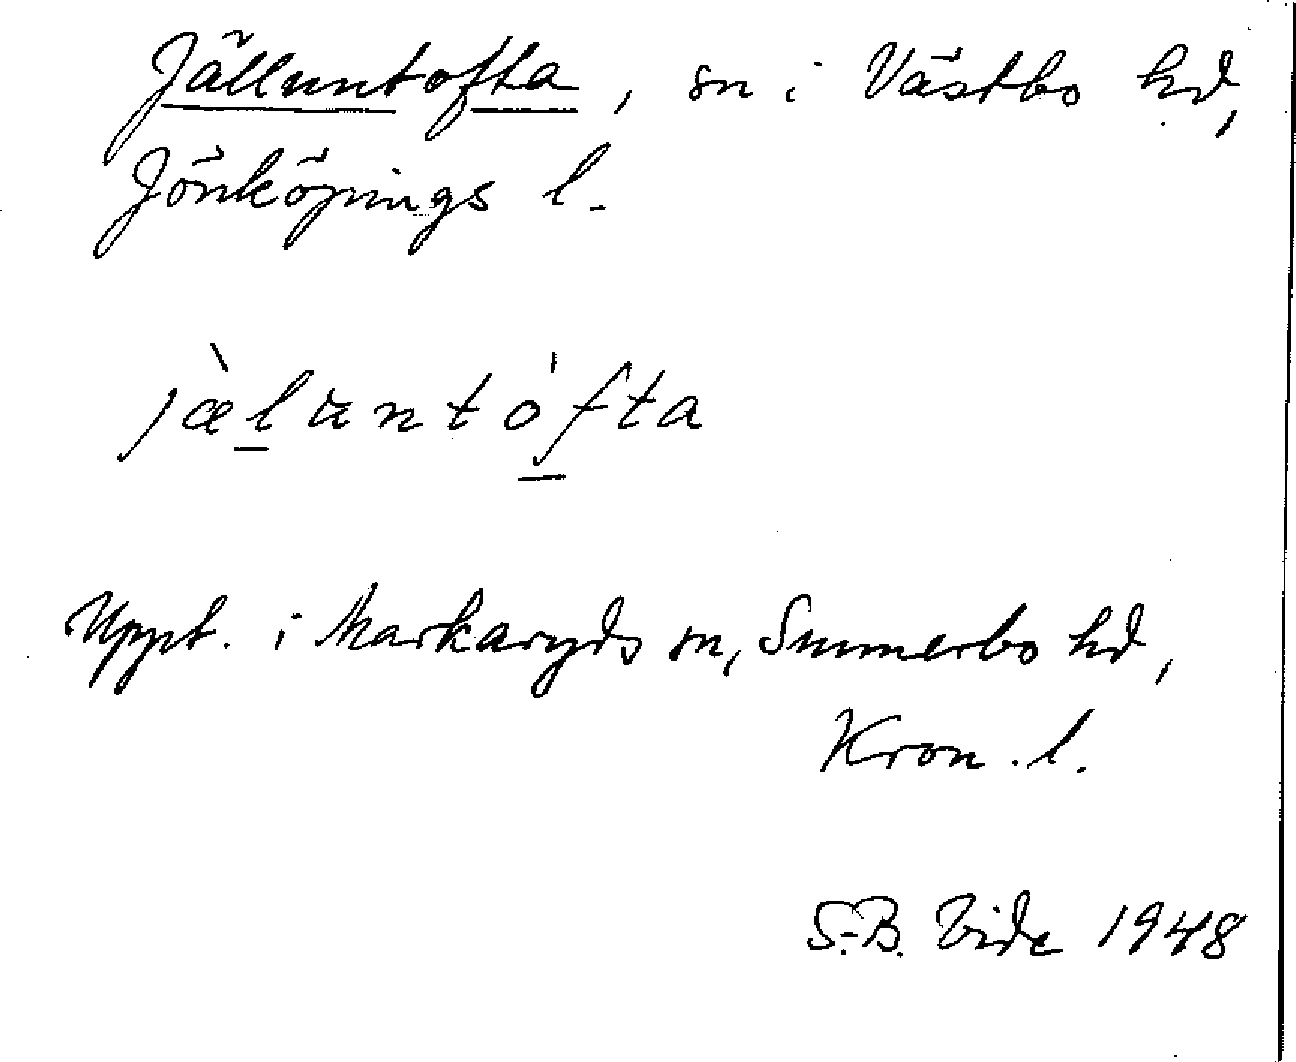 Jälluntofta, sn i Västbo hd,
Jönköpings l.
jæ̀lantófta
Uppt. i Markaryds sn, Sunnerbo hd,
Kron. l.
S.-B. Vide 1948